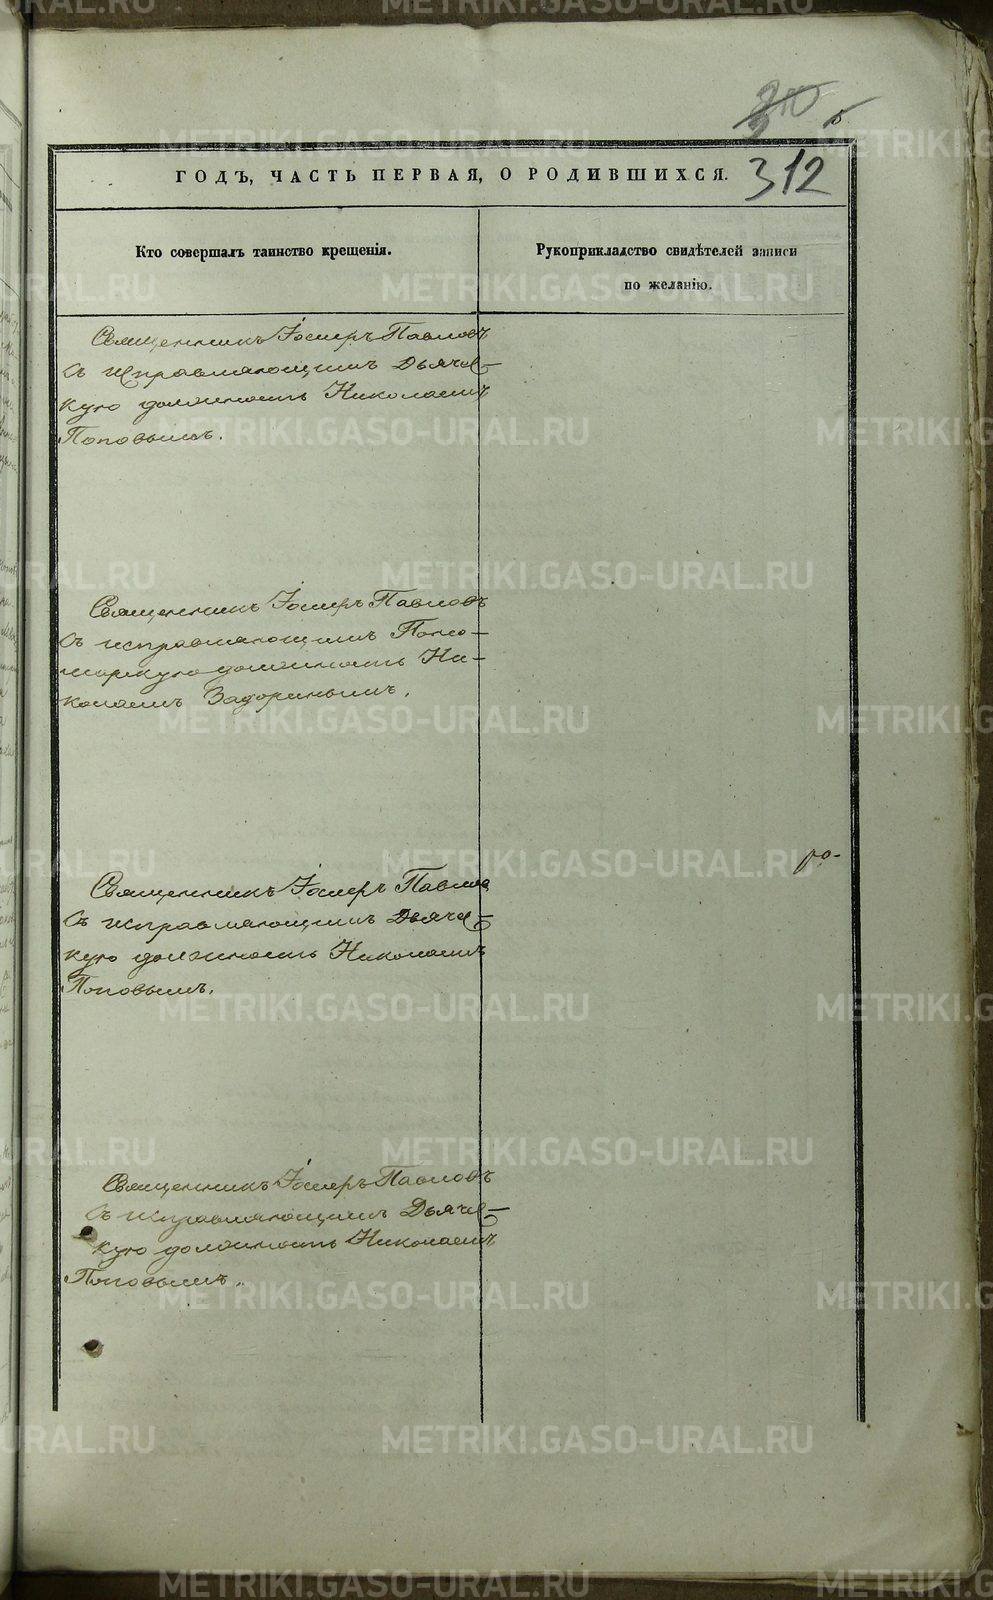 312
ГОДЪ, ЧАСТЬ ПЕРВАЯ, О РОДИВШИХСЯ.
Кто совершалъ таинство крещенія.
Рукоприкладство свидѣтелей записи
по желанію.
Священникъ Іосифъ Павловъ
съ исправляющимъ Дьяче-
кую должность Николаемъ
Поповымъ.
Священникъ Іосифъ Павловъ
съ исправляющимъ Поно-
марскую должность Ни-
колаемъ Задоринымъ.
Священникъ Іосифъ Павловъ
съ исправляющимъ Дьяче-
кую должность Николаемъ
Поповымъ.
Священникъ Іосифъ Павловъ
съ исправляющимъ Дьяче-
кую должность Николаемъ
Поповымъ.
METRIKI.GASO-URAL.RU